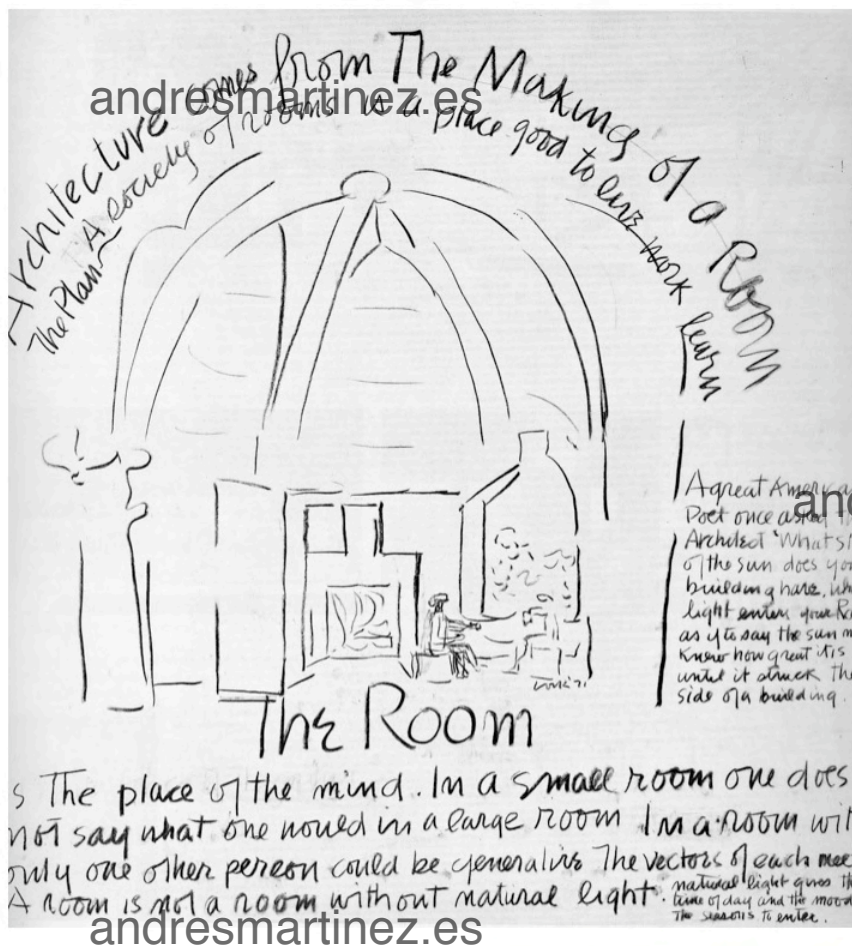 Architecture comes from The Making of a Room
The Plan - A society of rooms is a place good to live work learn
A great America
Poet once asked
Architect "What sl
of the sun does yo
building have, wh
light enters your Ro
as if to say the sun n
Knew how great it is
until it struck the
side of a building.
The Room
s The place of the mind. In a small room one does
not say what one would in a large room In a room wit
only one other person could be generative The vectors of each mee
A room is not a room without natural light.
natural light gives th
time of day and the mood
The seasons to enter.
andresmartinez.es
an
andresmartinez.es